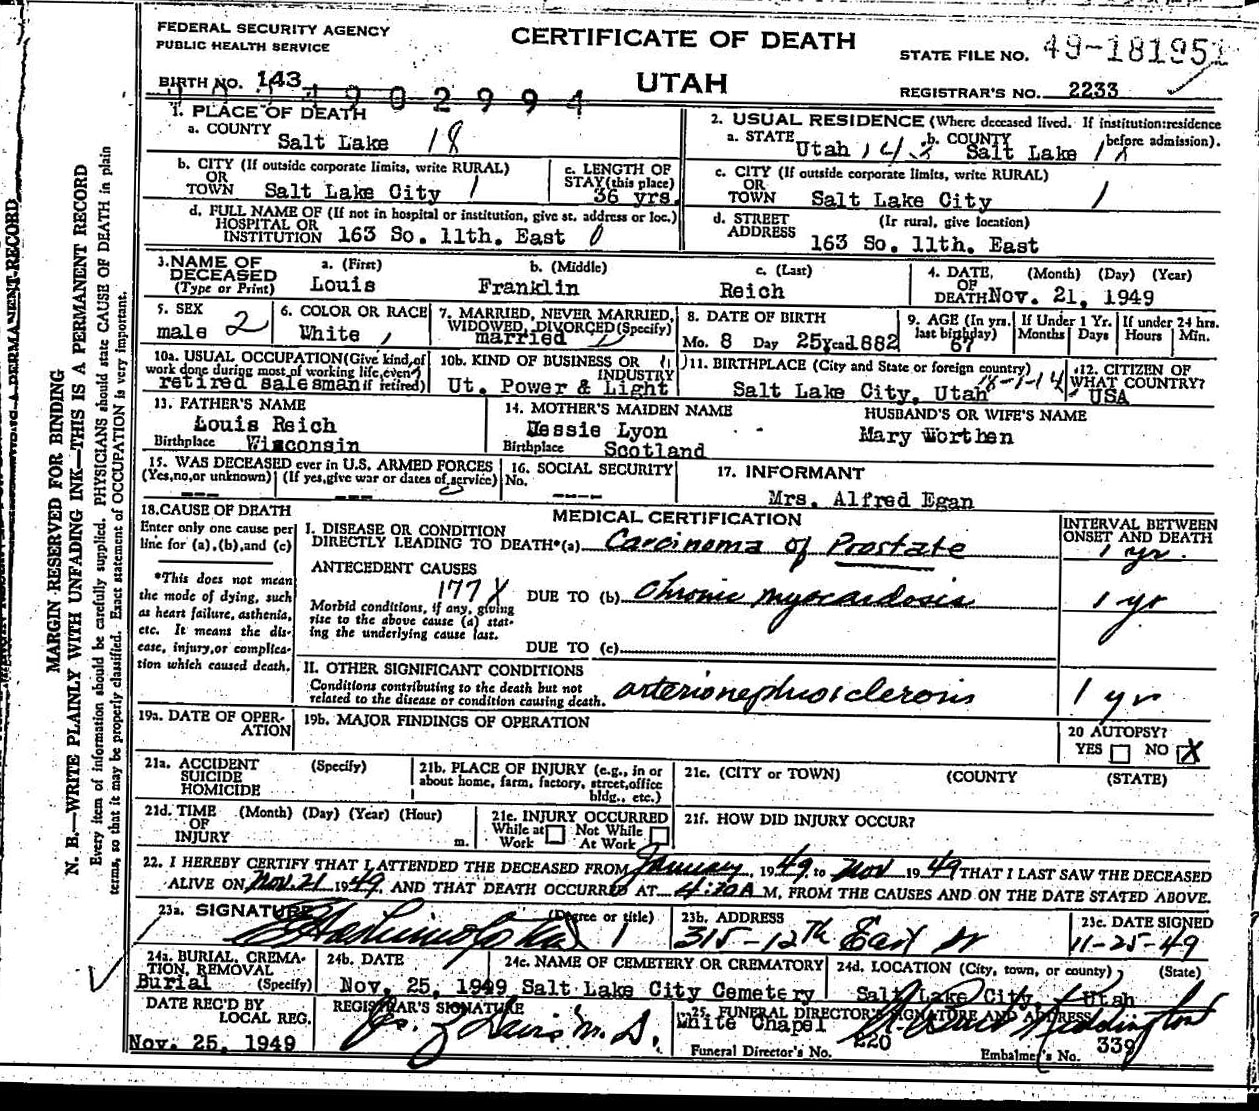 FEDERAL SECURITY AGENCY
PUBLIC HEALTH SERVICE
CERTIFICATE OF DEATH
STATE FILE NO. 49-181951
BIRTH NO. 143
1902994
UTAH
REGISTRAR'S NO. 2233
1. PLACE OF DEATH
a. COUNTY
Salt Lake 18
2. USUAL RESIDENCE (Where deceased lived. If institution:residence before admission).
a. STATE Utah b. COUNTY Salt Lake
b. CITY (If outside corporate limits, write RURAL)
OR
TOWN Salt Lake City 1
c. LENGTH OF
STAY(this place)
36 yrs.
c. CITY (If outside corporate limits, write RURAL)
OR
TOWN Salt Lake City 1
d. FULL NAME OF (If not in hospital or institution, give st. address or loc.)
HOSPITAL OR
INSTITUTION 163 So. 11th. East 0
d. STREET (If rural, give location)
ADDRESS
163 So. 11th. East
3.NAME OF
DECEASED
(Type or Print)
a. (First)
Louis
b. (Middle)
Franklin
c. (Last)
Reich
4. DATE (Month) (Day) (Year)
OF
DEATH Nov. 21, 1949
5. SEX
male 2
6. COLOR OR RACE
White
7. MARRIED, NEVER MARRIED,
WIDOWED, DIVORCED(Specify)
married
8. DATE OF BIRTH
Mo. 8 Day 25 Year 1882
9. AGE (In yrs.
last birthday)
67
If Under 1 Yr.
Months Days
If under 24 hrs.
Hours Min.
10a. USUAL OCCUPATION(Give kind of
work done during most of working life, even
retired salesman if retired)
10b. KIND OF BUSINESS OR
INDUSTRY
Ut. Power & Light
11. BIRTHPLACE (City and State or foreign country)
Salt Lake City, Utah 18-1-14
12. CITIZEN OF
WHAT COUNTRY?
USA
13. FATHER'S NAME
Louis Reich
Birthplace Wisconsin
14. MOTHER'S MAIDEN NAME
Jessie Lyon
Birthplace Scotland
HUSBAND'S OR WIFE'S NAME
Mary Worthen
15. WAS DECEASED ever in U.S. ARMED FORCES
(Yes,no,or unknown) (If yes,give war or dates of service)
--- ---
16. SOCIAL SECURITY
No.
----
17. INFORMANT
Mrs. Alfred Egan
18.CAUSE OF DEATH
Enter only one cause per
line for (a),(b),and (c)
*This does not mean
the mode of dying, such
as heart failure, asthenia,
etc. It means the dis-
ease, injury,or complica-
tion which caused death.
MEDICAL CERTIFICATION
INTERVAL BETWEEN
ONSET AND DEATH
I. DISEASE OR CONDITION
DIRECTLY LEADING TO DEATH*(a) Carcinoma of Prostate 1 yr.
ANTECEDENT CAUSES
177X
DUE TO (b) Chronic myocardosis 1 yr
Morbid conditions, if any, giving
rise to the above cause (a) stat-
ing the underlying cause last.
DUE TO (c)
II. OTHER SIGNIFICANT CONDITIONS
Conditions contributing to the death but not
related to the disease or condition causing death.
arterionephrosclerosis 1 yr
19a. DATE OF OPER-
ATION
19b. MAJOR FINDINGS OF OPERATION
20 AUTOPSY?
YES NO X
21a. ACCIDENT (Specify)
SUICIDE
HOMICIDE
21b. PLACE OF INJURY (e.g., in or
about home, farm, factory, street,office
bldg., etc.)
21c. (CITY or TOWN) (COUNTY) (STATE)
21d. TIME (Month) (Day) (Year) (Hour)
OF
INJURY m.
21e. INJURY OCCURRED
While at Not While
Work At Work
21f. HOW DID INJURY OCCUR?
22. I HEREBY CERTIFY THAT I ATTENDED THE DECEASED FROM January, 1949. to Nov 1949 THAT I LAST SAW THE DECEASED
ALIVE ON Nov. 21 1949, AND THAT DEATH OCCURRED AT 4:20A M, FROM THE CAUSES AND ON THE DATE STATED ABOVE.
23a. SIGNATURE (Degree or title)
23b. ADDRESS
315-12th East
23c. DATE SIGNED
11-25-49
24a. BURIAL, CREMA-
TION, REMOVAL
Burial (Specify)
24b. DATE
Nov. 25, 1949
24c. NAME OF CEMETERY OR CREMATORY
Salt Lake City Cemetery
24d. LOCATION (City, town, or county) (State)
Salt Lake City, Utah
DATE REC'D BY
LOCAL REG.
Nov. 25, 1949
REGISTRAR'S SIGNATURE
Davis M.D.
25. FUNERAL DIRECTOR'S SIGNATURE AND ADDRESS
White Chapel
Funeral Director's No. 220
Embalmer's No. 339
MARGIN RESERVED FOR BINDING
N. B.—WRITE PLAINLY WITH UNFADING INK—THIS IS A PERMANENT RECORD
Every item of information should be carefully supplied. PHYSICIANS should state CAUSE OF DEATH in plain
terms, so that it may be properly classified. Exact statement of OCCUPATION is very important.